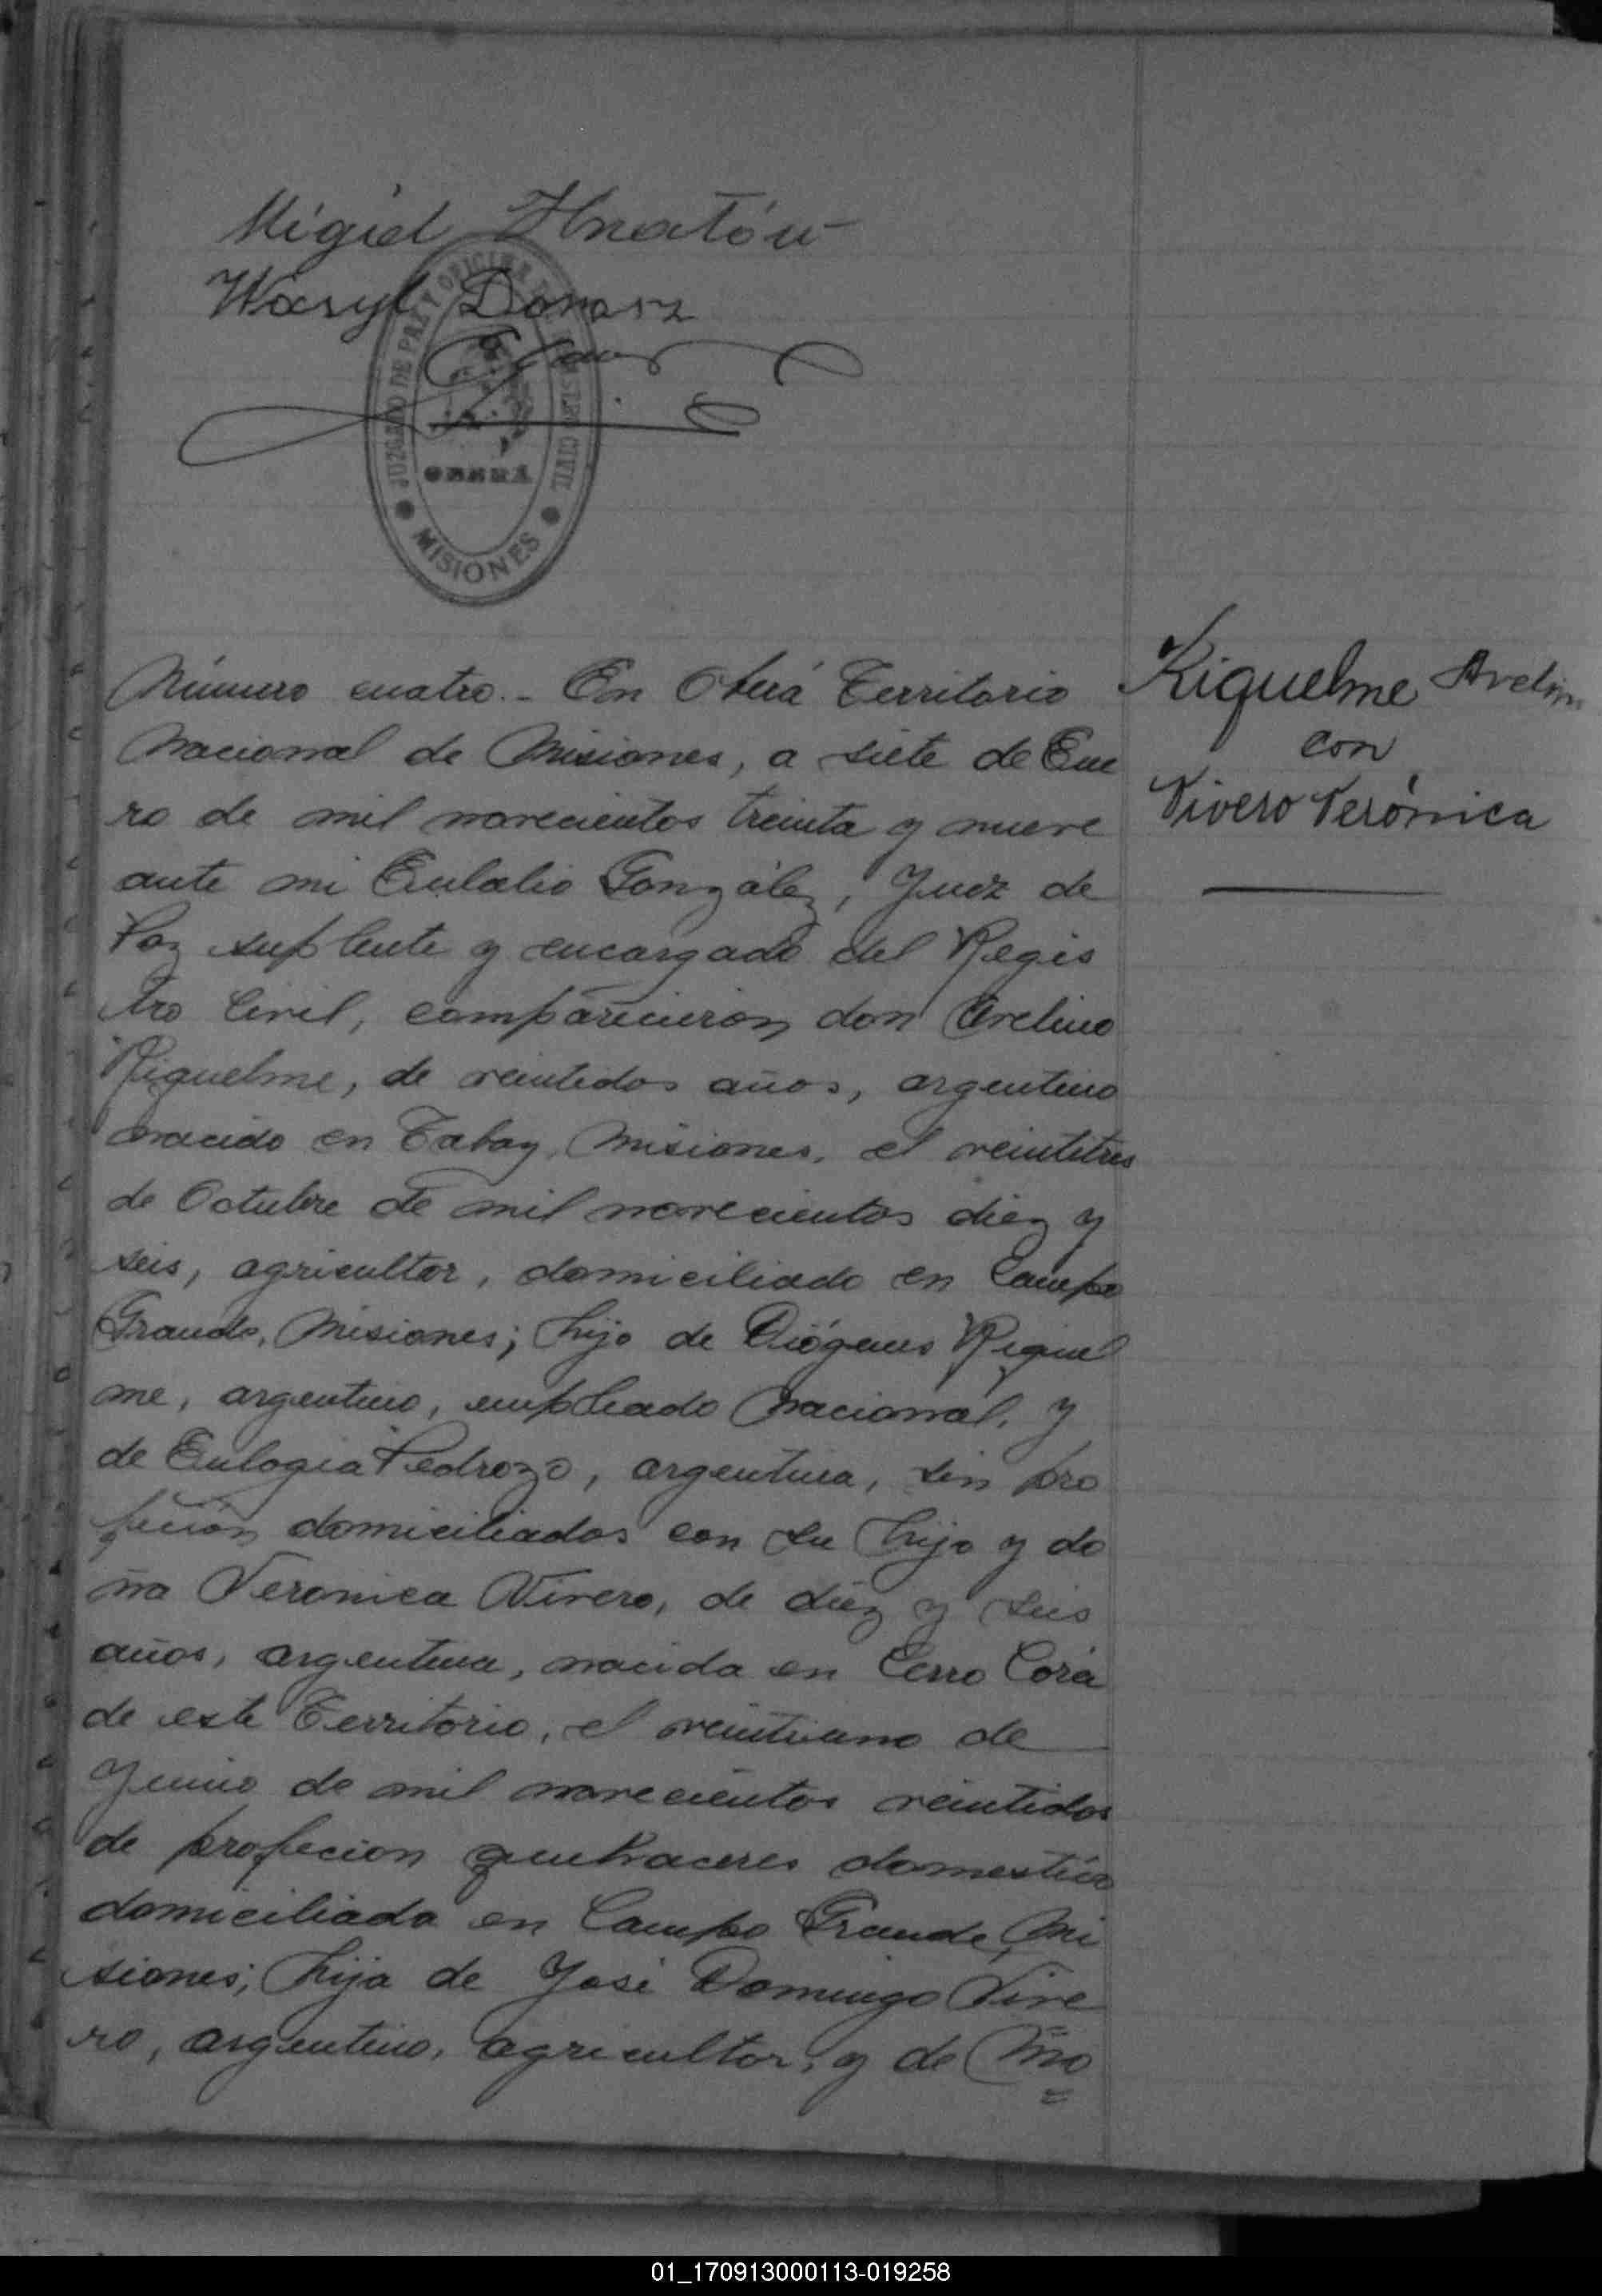 Migiel Hnatów
Wasyl
JUZGADO DE PAZ Y OFICINA DEL REGISTRO CIVIL
OBERÁ
MISIONES
Riquelme Avelino
con
Vivero Verónica
Número cuatro.- En Oberá Territorio
Nacional de Misiones, a siete de Ene
ro de mil novecientos treinta y nueve
ante mi Eulalio González, Juez de
Paz suplente y encargado del Regis
tro Civil, comparicieron don Avelino
Riquelme, de veintidos años, argentino
nacido en Tabay, Misiones, el veintitres
de Octubre de mil novecientos diez y
seis, agricultor, domiciliado en Campo
Grande, Misiones; hijo de Diógenes Riquel
me, argentino, empleado nacional, y
de Eulogia Pedrozo, argentina, sin pro
feción domiciliados con su hijo y do
ña Veronica Vivero, de diez y seis
años, argentina, nacida en Cerro Corá
de este Territorio, el veintiuno de
Junio de mil novecientos veintidos
de profecion quehaceres domestico
domiciliada en Campo Grande, Mi
siones; hija de José Domingo Vive
ro, argentino, agricultor, y de Mo
01_170913000113-019258